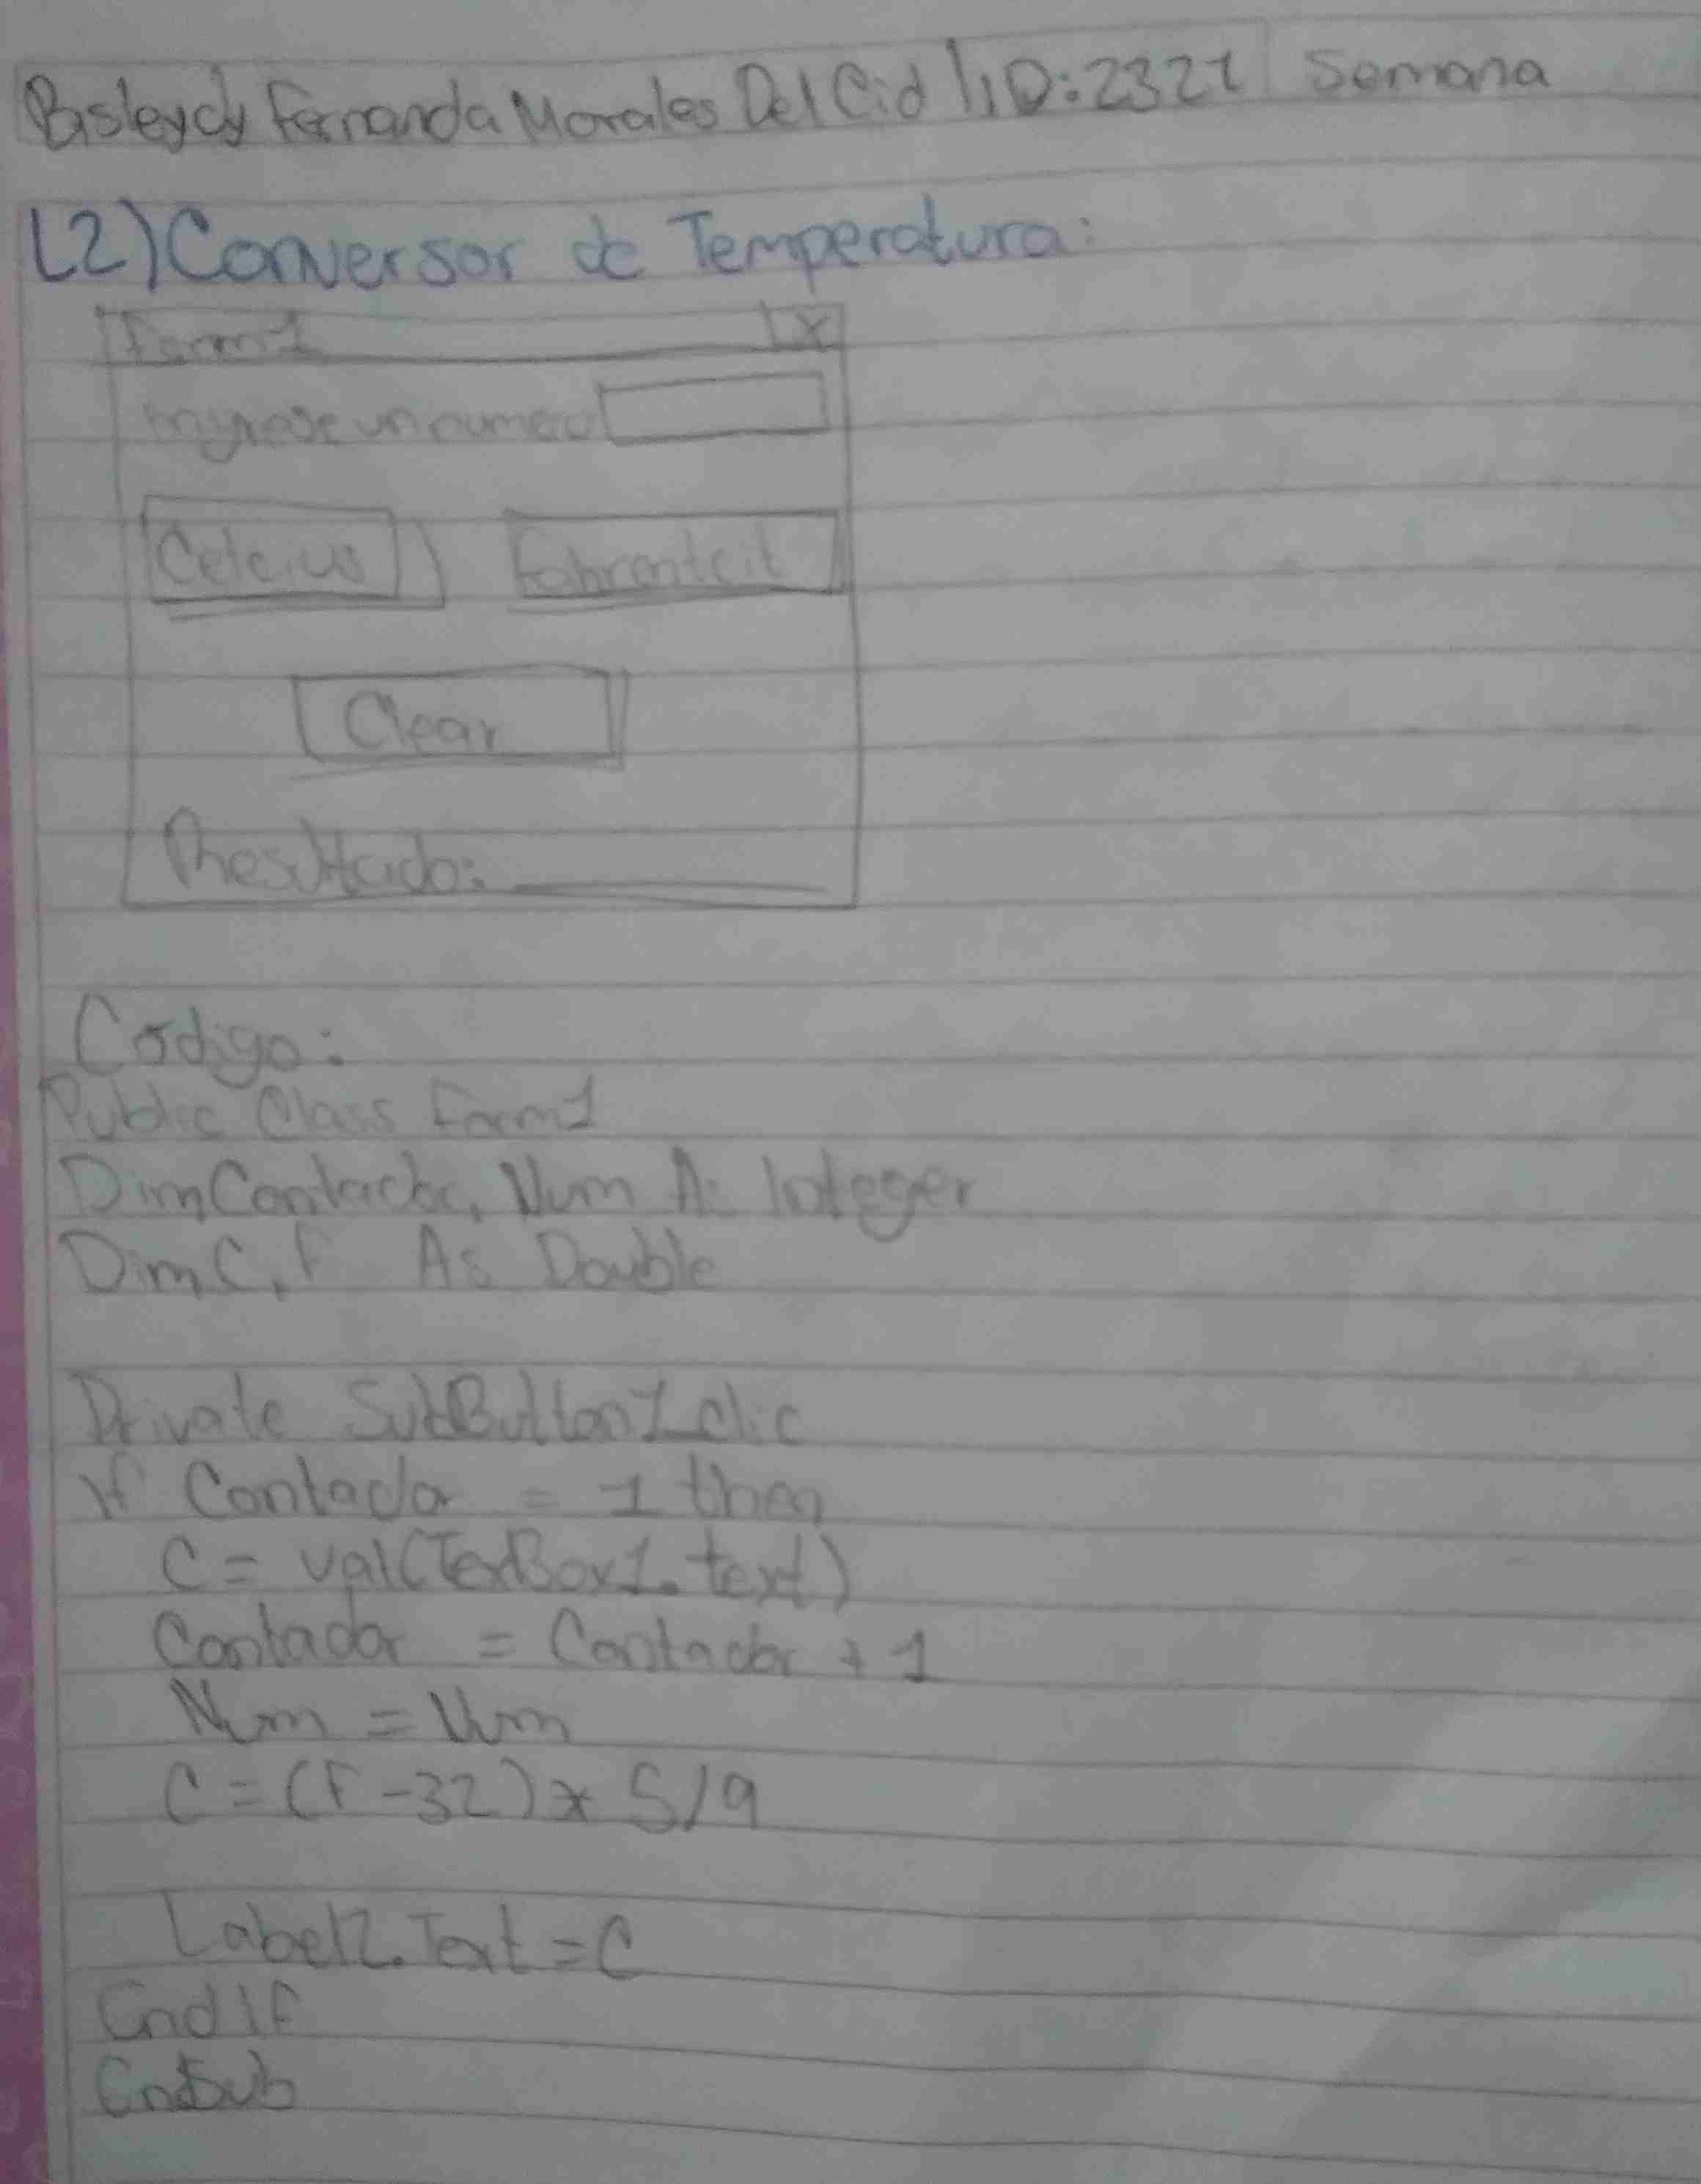 Bisleydy Fernanda Morales Del Cid ID: 2321 Semana
L2) Conversor de Temperatura:
Form1 X
Ingrese un numero
Celcius Fahrenteit
Clear
Resultado:
Codigo:
Public Class Form1
Dim Contador, Num As Integer
Dim C, F As Double
Private Sub Button1_clic
If Contador = 1 then
C = val(TexBox1.text)
Contador = Contador + 1
Num = Num
C = (F - 32) * 5/9
Label2.Text = C
End If
End Sub